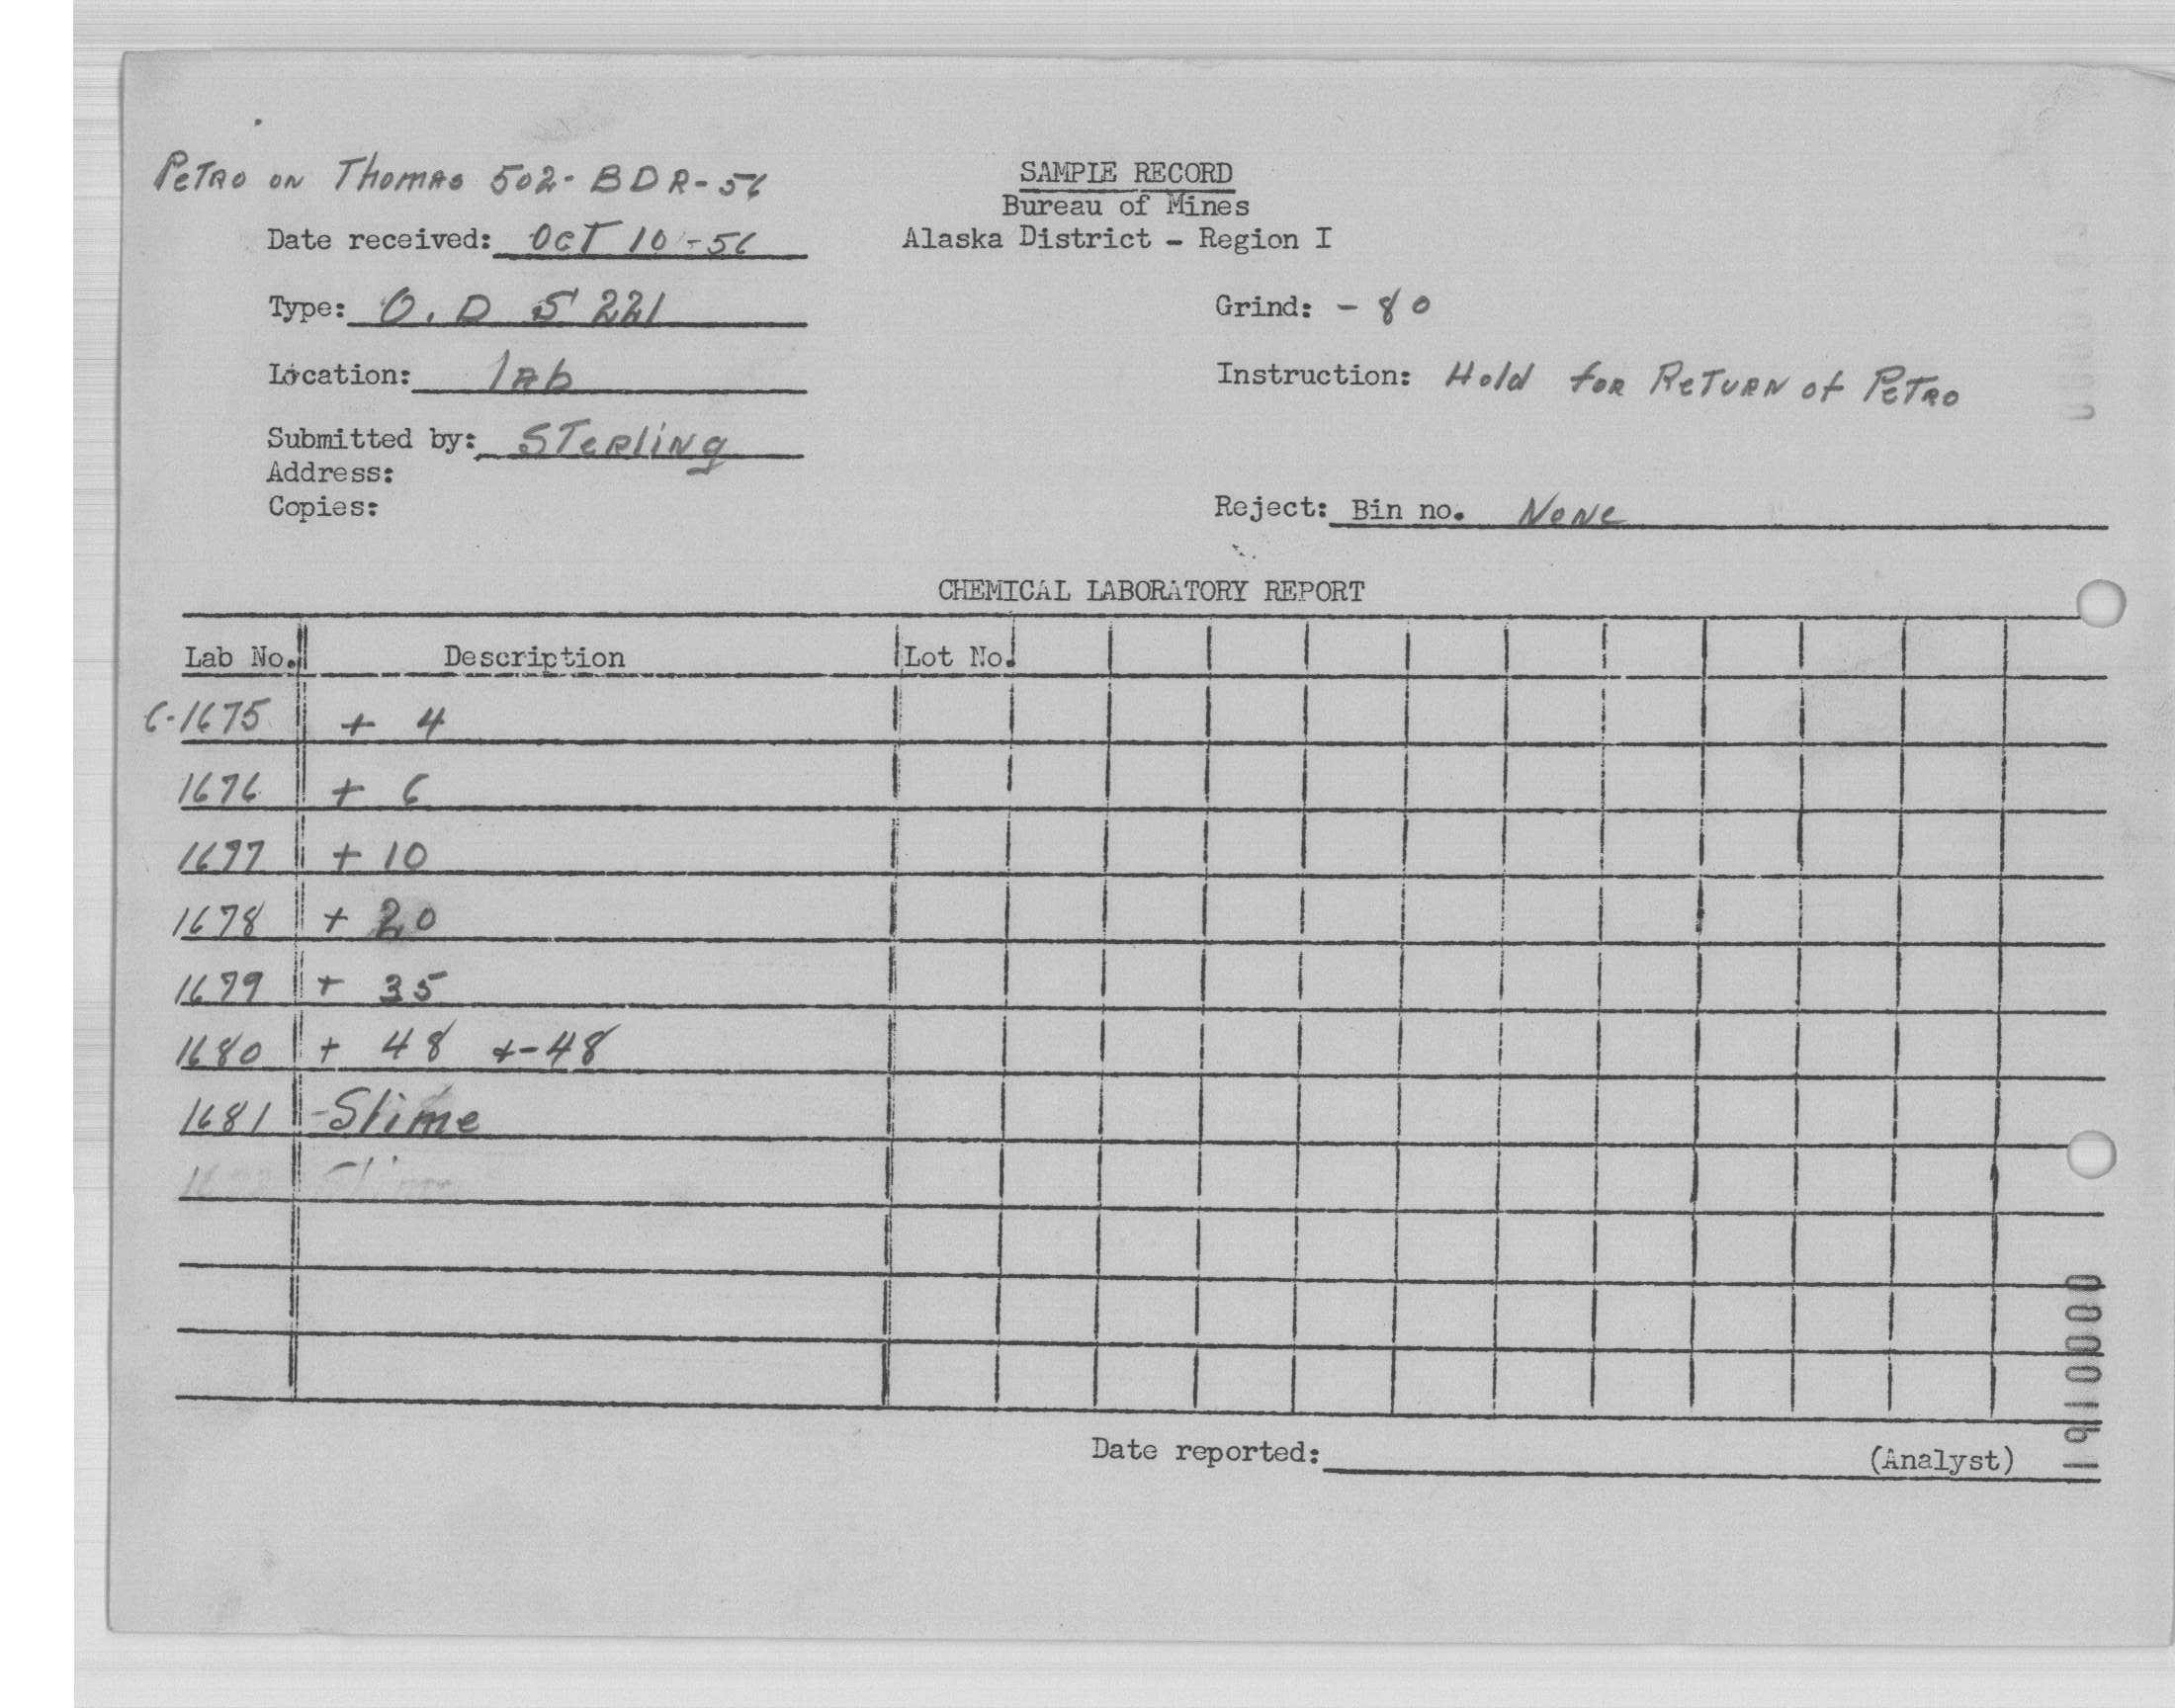 Petro on Thomas 502-BDR-56
SAMPLE RECORD
Bureau of Mines
Alaska District - Region I
Date received: Oct 10-56
Type: O.D S 221
Grind: - 80
Location: lab
Instruction: Hold for Return of Petro
Submitted by: Sterling
Address:
Copies:
Reject: Bin no. None
CHEMICAL LABORATORY REPORT
Lab No. Description Lot No.
C-1675 + 4
1676 + 6
1677 + 10
1678 + 20
1679 + 35
1680 + 48 +-48
1681 -Slime
Date reported: (Analyst)